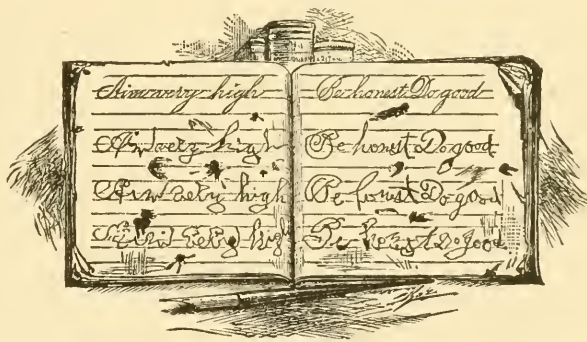 Aim very high
Air laety high
Aim aety high
Aim wely high
Be honest Do good
Be honst Do good
Be honist Do good
Be honyst Do good